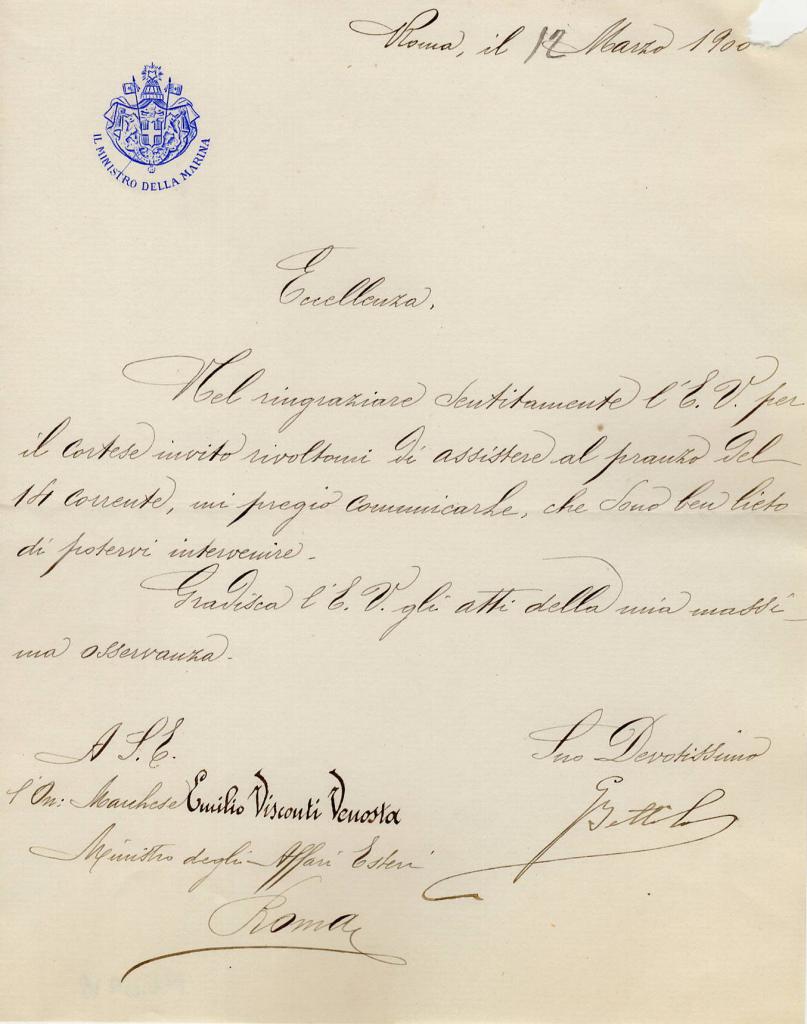 Roma, il 12 Marzo 1900
IL MINISTRO DELLA MARINA
Eccellenza,
Nel ringraziare sentitamente l'E. V. per
il cortese invito rivoltomi di assistere al pranzo del
14 corrente, mi pregio comunicarLe, che sono ben lieto
di potervi intervenire.
Gradisca l'E. V. gli atti della mia massi-
ma osservanza.
A S. E.
l'On: Marchese Emilio Visconti Venosta
Ministro degli Affari Esteri
Roma
Suo Devotissimo
G Bettolo